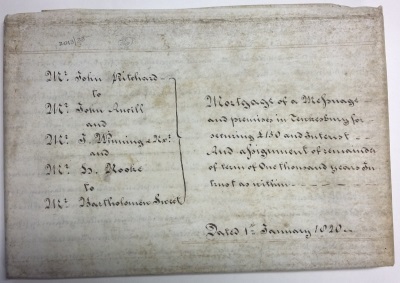 Mr. John Pritchard
to
Mr. John
and
Mr. T. Winning & Nx.
and
Mr. H. Rooke
to
Mr. Bartholomew
Mortgage of a Messuage
and premises in Tewkesbury for
securing £150 and Interest
And assignment of remainder
of term of One thousand years In
trust as within
Dated 1st January 1820